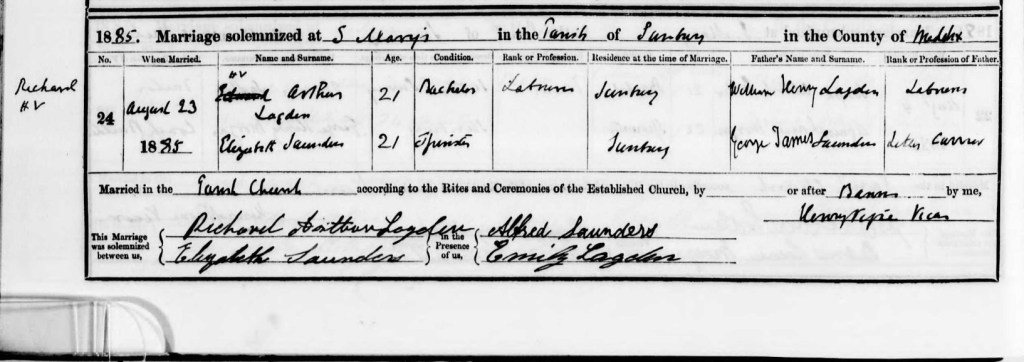 1885. Marriage solemnized at S Mary's in the Parish of Sunbury in the County of Middx
No. When Married. Name and Surname. Age. Condition. Rank or Profession. Residence at the time of Marriage. Father's Name and Surname. Rank or Profession of Father.
Richard
HV
HV
24 August 23 Edward Arthur Lagden 21 Bachelor Labourer Sunbury William Henry Lagden Labourer
1885 Elizabeth Saunders 21 Spinster Sunbury George James Saunders Letter Carrier
Married in the Parish Church according to the Rites and Ceremonies of the Established Church, by or after Banns by me,
Henry Vicar
This Marriage was solemnized between us, Richard Arthur Lagden in the Presence of us, Alfred Saunders
Elizabeth Saunders Emily Lagden